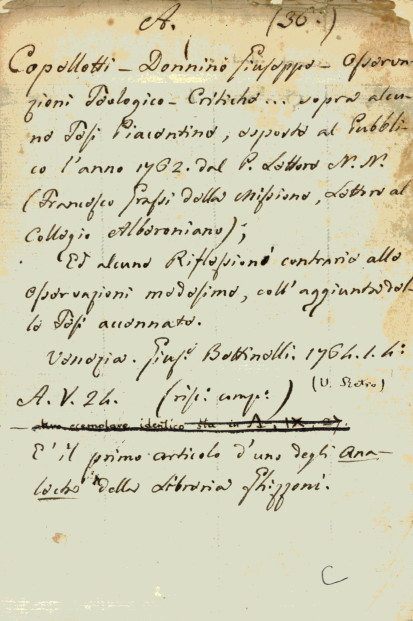 A. (30°.)
Copellotti - Donnino Giuseppe - Osserva-
zioni Teologico-Critiche ... sopra alcu-
ne Tesi Piacentine, esposte al Pubbli-
co l'anno 1762. dal P. Lettore N. N.
(Francesco Grassi della Missione, Lettore al
Collegio Alberoniano);
Ed alcune Riflessioni contrarie alle
Osservazioni medesime, coll'aggiunta del-
le Tesi accennate.
Venezia. Gius.e Bettinelli. 1764. 1. 4:
A. V. 24. (risp. comp.) (V. Retro)
un esemplare identico sta in A, IX, 27.
E' il primo articolo d'uno degli Ana-
della Libreria Ghizzoni.
C